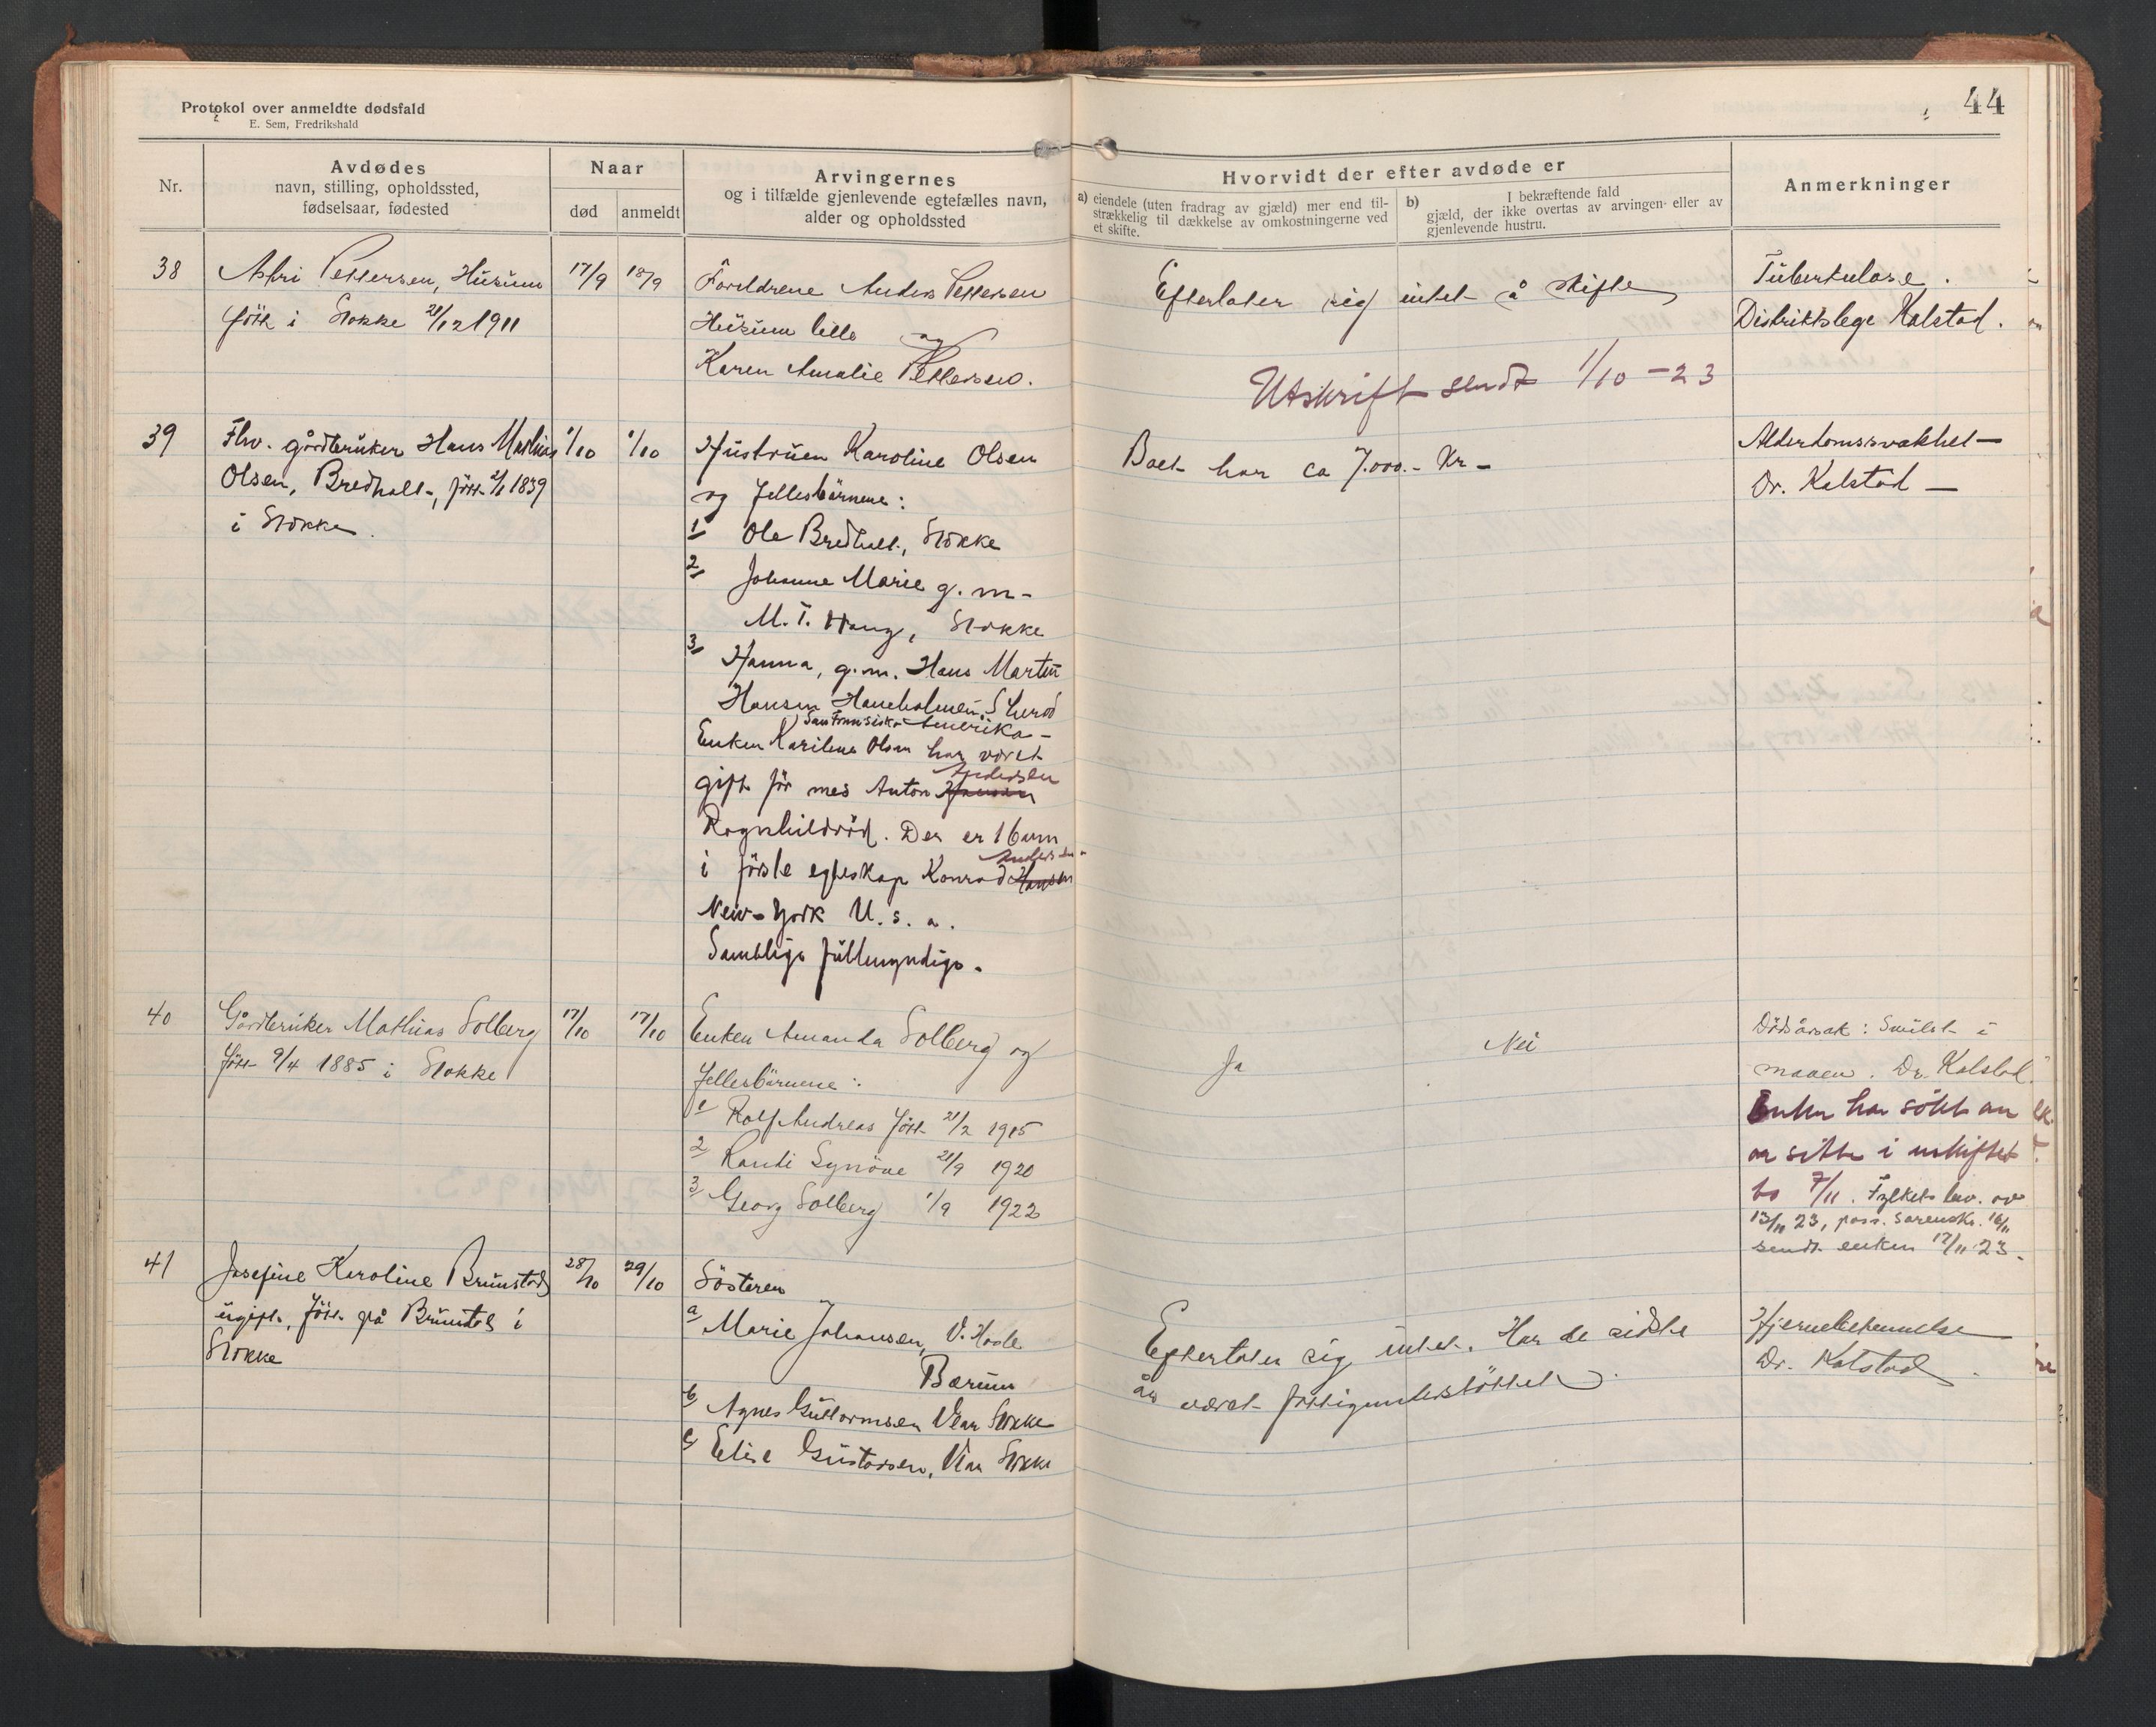 Protokol over anmeldte dødsfald
E. Sem, Fredrikshald
44
Nr.
Avdødes
navn, stilling, opholdssted,
fødselsaar, fødested
Naar
død
anmeldt
Arvingernes
og i tilfælde gjenlevende egtefælles navn,
alder og opholdssted
Hvorvidt der efter avdøde er
a) eiendele (uten fradrag av gjæld) mer end til-
strækkelig til dækkelse av omkostningerne ved
et skifte.
b) I bekræftende fald
gjæld, der ikke overtas av arvingen eller av
gjenlevende hustru.
Anmerkninger
38
Pettersen, Husum
födt i Stokke 21/12 1911
17/9
18/9
Foreldrene Anders Pettersen
Husum lille og
Karen Amalie Pettersen.
Efterlater sig intet å skifte
Tuberkulose.
Distriktslege Kalstad.
Utskrift sendt 1/10 - 23
39
Fhv. gårdbruker Hans Mathias
Olsen, Bredholt, födt 1839
i Stokke.
1/10
1/10
Hustruen Karoline Olsen
og fellesbärnene:
1 Ole Bredholt, Stokke
2 Johanne Marie g. m.
M. T. Haug, Stokke
3 Hanna, g. m. Hans Martin
Hansen
San Fransisko Amerika -
Enken Olsen har våret
gift för med Anton Hansen Andersen
Ragnhildröd. Der er 1 barn
i förste egteskap Konrad Hansen Andersen
New-York U. s. a.
Samtlige fullmyndige.
Boet har ca 7.000.- Kr -
Alderdomssvakhet -
Dr. Kalstad -
40
Gårdbruker Mathias Solberg
födt 9/4 1885 i Stokke
17/10
17/10
Enken Amanda Solberg og
fellesbärnene:
1 Rolf Andreas födt 21/2 1915
2 Randi Synöve 21/9 1920
3 Georg Solberg 1/9 1922
Ja
Nei
Dödsårsak: i
maven. Dr. Kalstad.
Enken har sökt om
aa sitte i uskiftet
bo 7/11. Fylkets bev. av
13/11 23, pass. Sorensk. 16/11
sendt enken 17/11 23.
41
Josefine Karoline Brunstad
ugift, födt på Brunstad i
Stokke
28/10
29/10
Sösteren
a Marie Johansen, V.
Bærum
b Agnes Guttormsen Vear Stokke
c Elise Gustavsen, Vear Stokke
Efterlater sig intet. Har de sidste
år været fattigunderstöttet.
Hjernebetennelse
Dr. Kalstad